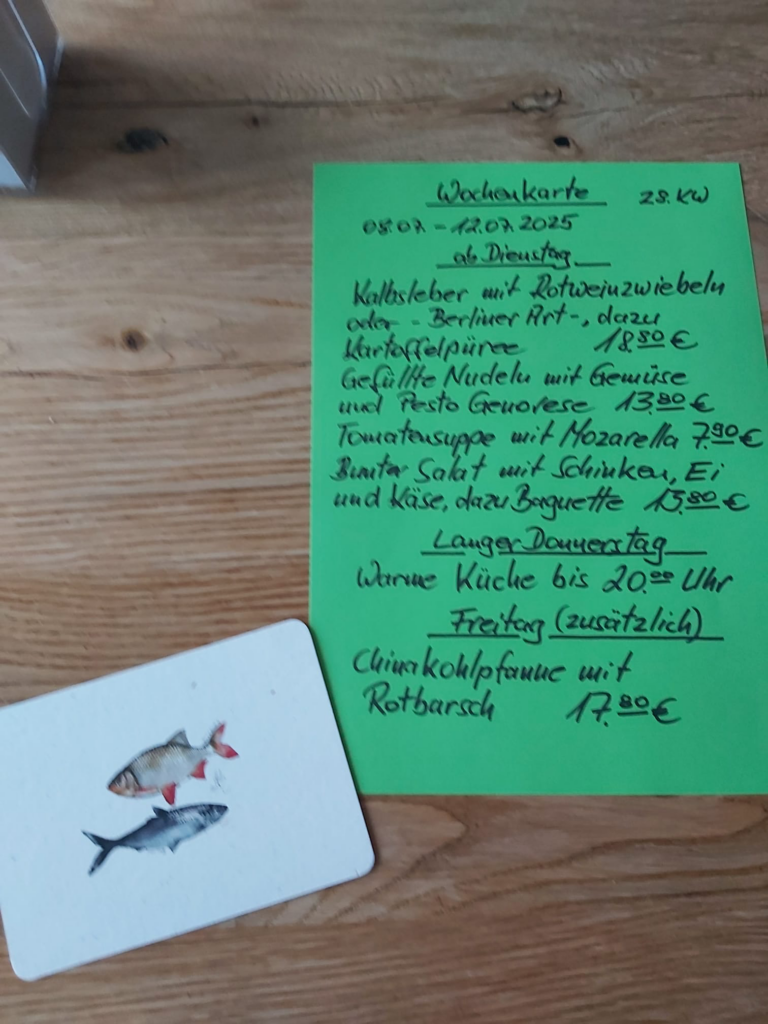 Wochenkarte 28. KW
08.07. - 12.07.2025
ab Dienstag
Kalbsleber mit Rotweinzwiebeln
oder - Berliner Art -, dazu
Kartoffelpüree 18.80 €
Gefüllte Nudeln mit Gemüse
und Pesto Genorese 13.80 €
Tomatensuppe mit Mozarella 7.90 €
Bunter Salat mit Schinken, Ei
und Käse, dazu Baguette 13.80 €
Langer Donnerstag
Warme Küche bis 20.00 Uhr
Freitag (zusätzlich)
Chinakohlpfanne mit
Rotbarsch 17.80 €